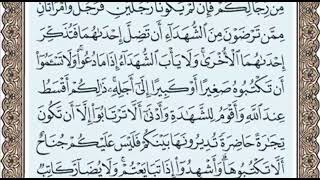 مِن رِّجَالِكُمْ فَإِن لَّمْ يَكُونَا رَجُلَيْنِ فَرَجُلٌ وَامْرَأَتَانِ
مِمَّن تَرْضَوْنَ مِنَ الشُّهَدَاءِ أَن تَضِلَّ إِحْدَىٰهُمَا فَتُذَكِّرَ
إِحْدَىٰهُمَا الْأُخْرَىٰ وَلَا يَأْبَ الشُّهَدَاءُ إِذَا مَا دُعُوا وَلَا تَسْـَٔمُوا
أَن تَكْتُبُوهُ صَغِيرًا أَوْ كَبِيرًا إِلَىٰ أَجَلِهِ ذَٰلِكُمْ أَقْسَطُ
عِندَ اللَّهِ وَأَقْوَمُ لِلشَّهَٰدَةِ وَأَدْنَىٰ أَلَّا تَرْتَابُوا إِلَّا أَن تَكُونَ
تِجَٰرَةً حَاضِرَةً تُدِيرُونَهَا بَيْنَكُمْ فَلَيْسَ عَلَيْكُمْ جُنَاحٌ
أَلَّا تَكْتُبُوهَا وَأَشْهِدُوا إِذَا تَبَايَعْتُمْ وَلَا يُضَارَّ كَاتِبٌ